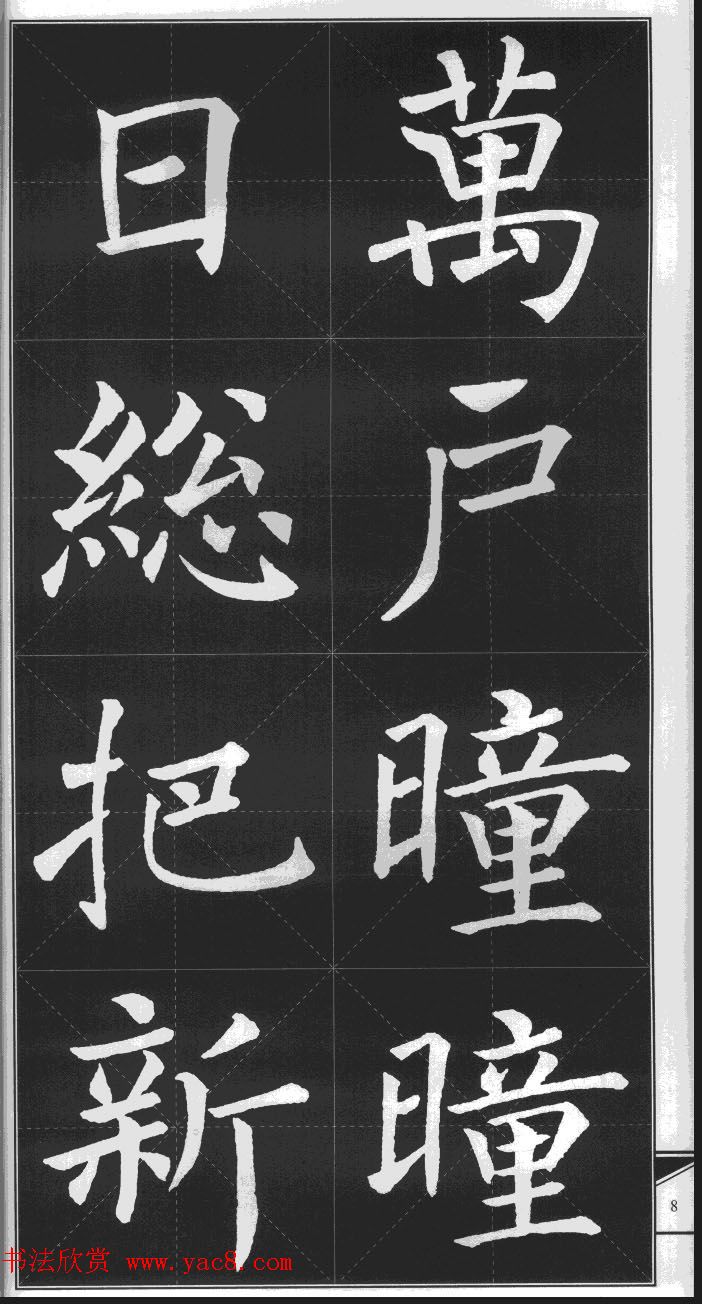 萬户曈曈
日総把新
8
书法欣赏 www.yac8.com